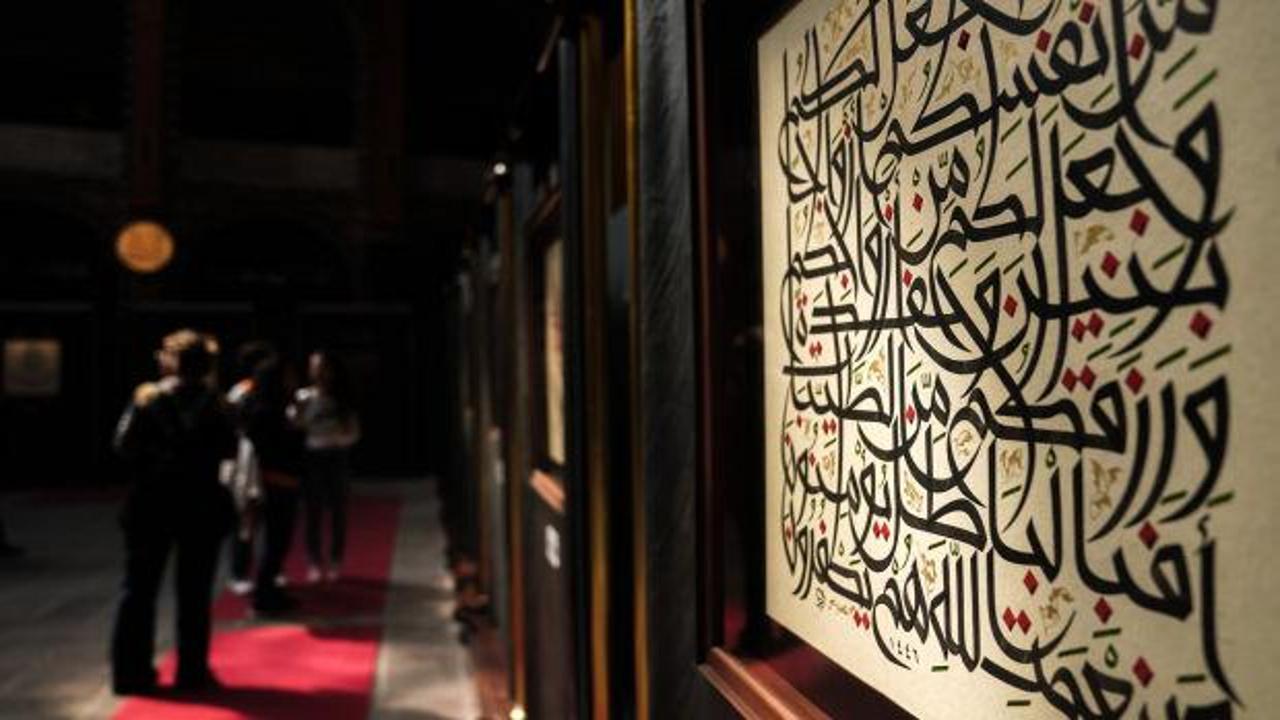 جعل لكم
من أنفسكم أزواجا
وجعل لكم من أزواجكم
بنين وحفدة
ورزقكم من الطيبات
أفبالباطل يؤمنون
وبنعمت الله هم يكفرون
١٤٤٦